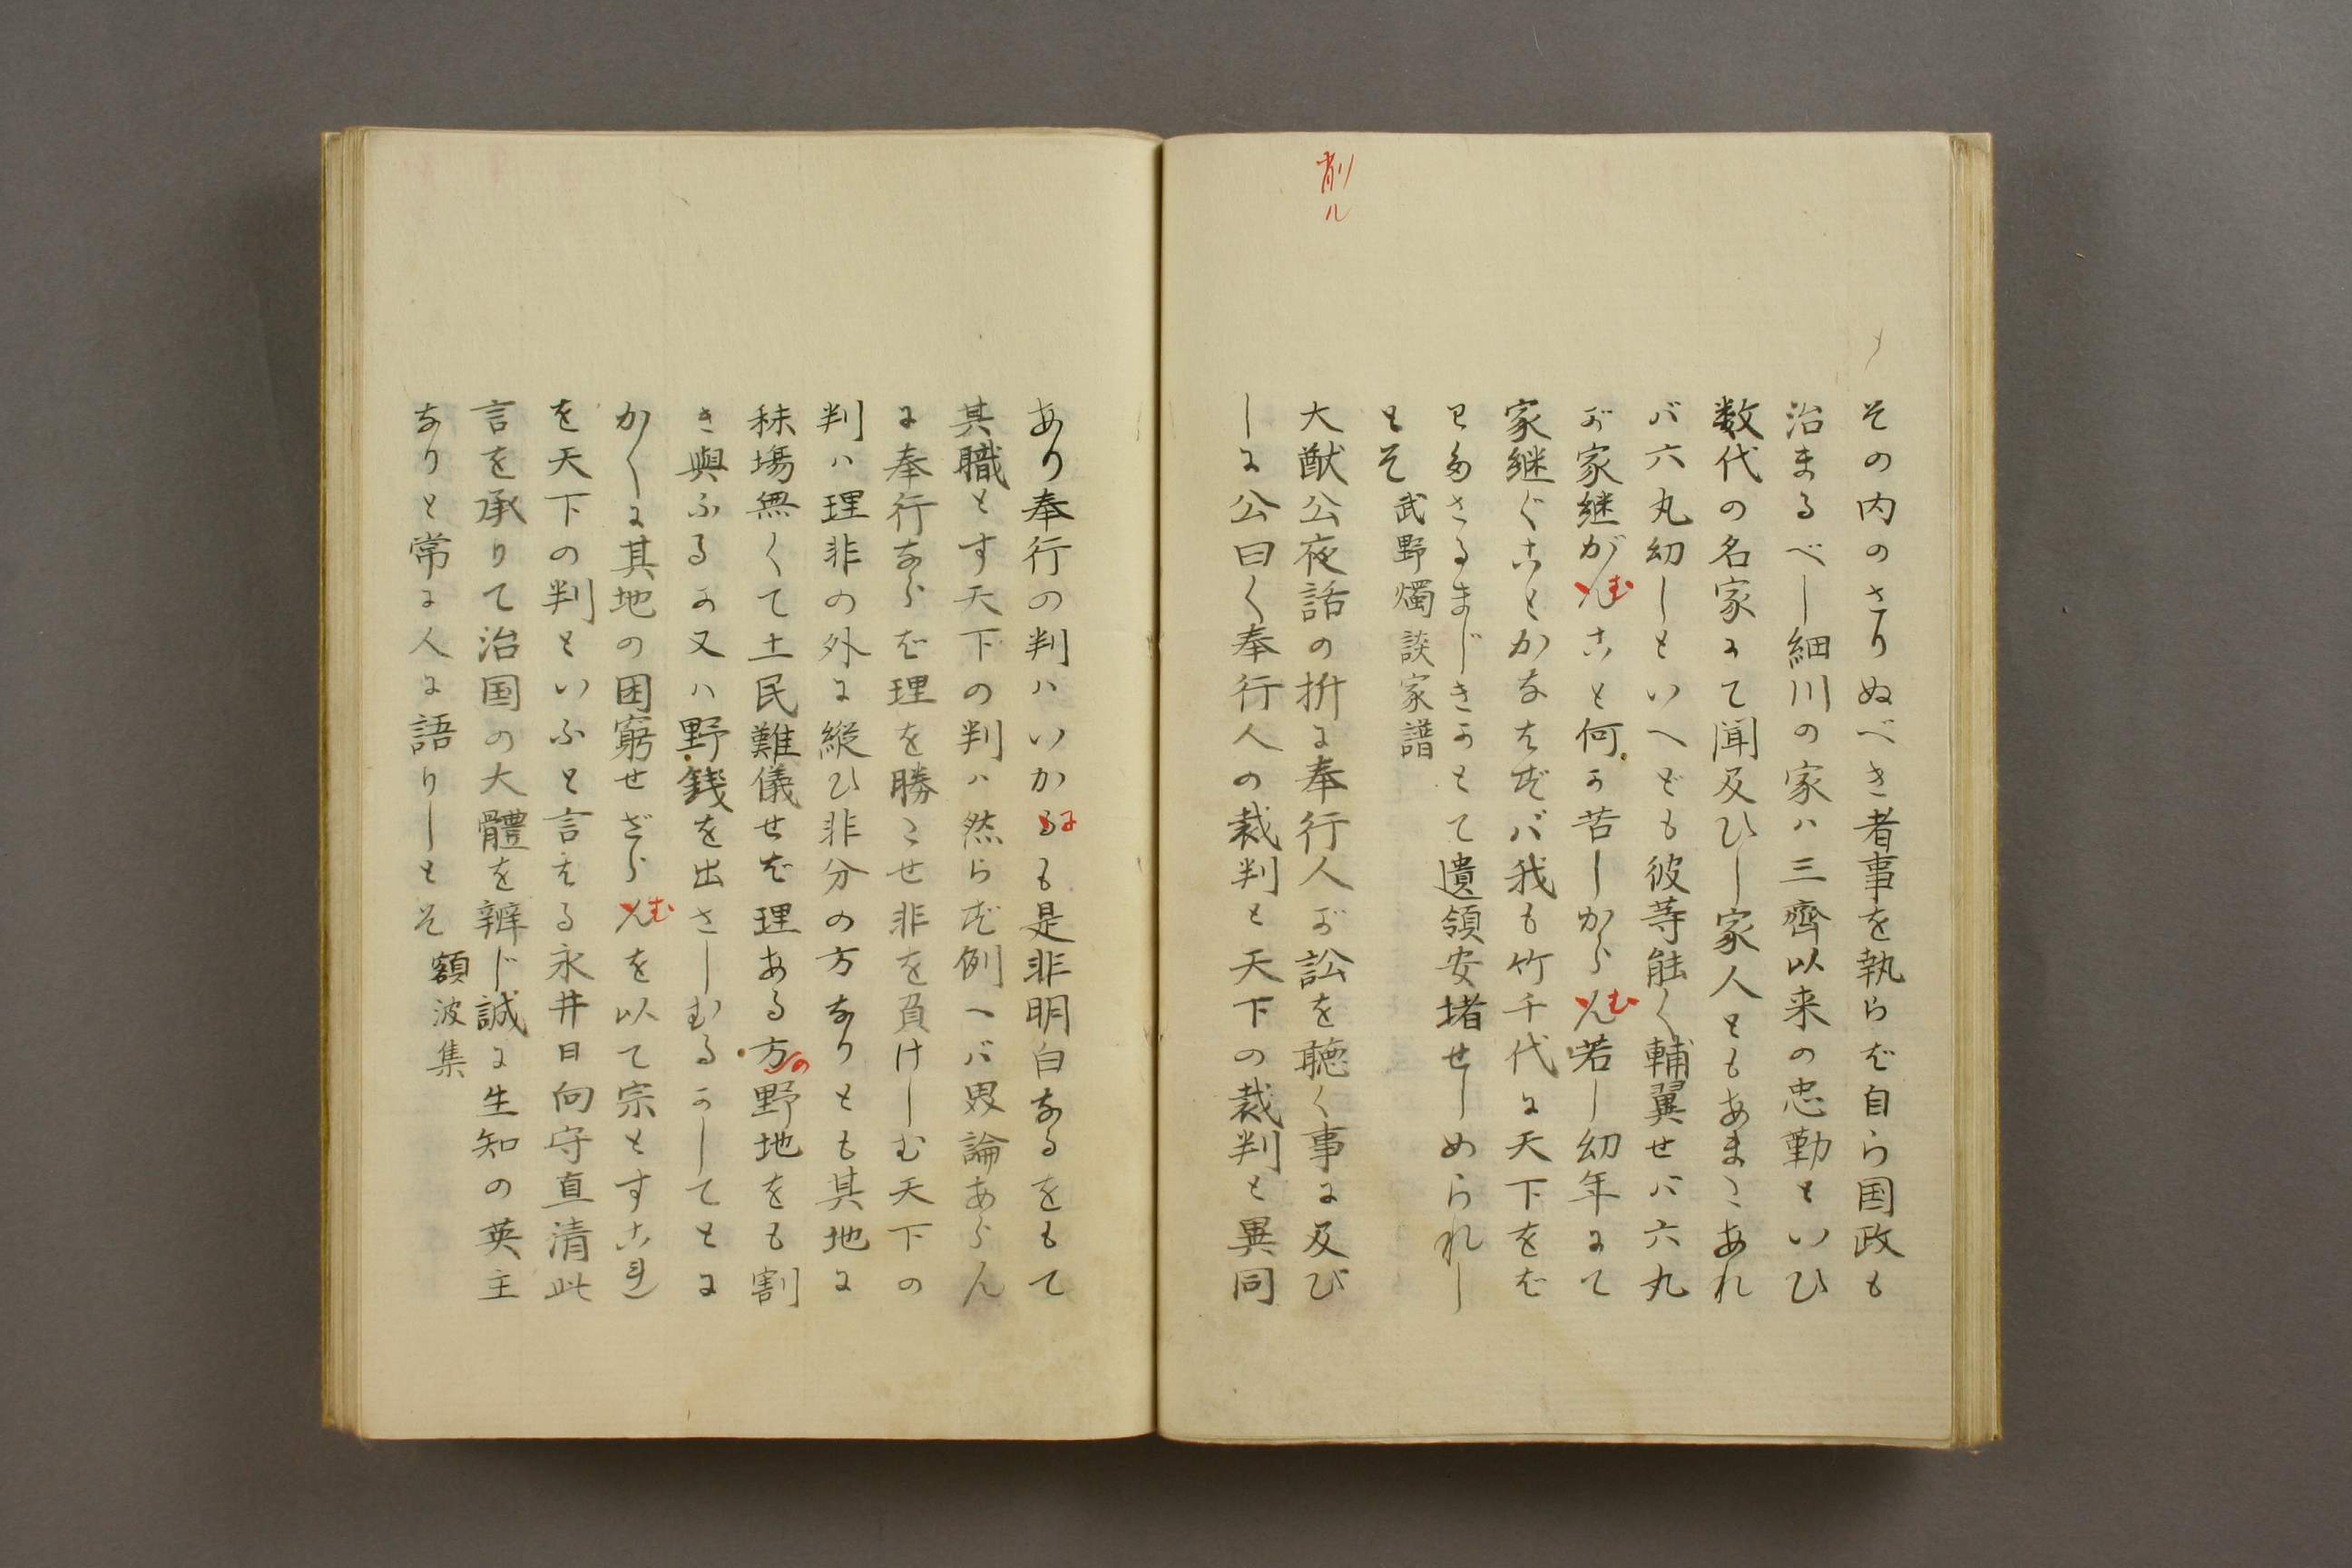 削ル
その内のさりぬべき者事を執らば自ら国政も
治まるべし細川の家ハ三齊以来の忠勤といひ
数代の名家にて聞及ひし家人ともあまたあれ
バ六丸幼しといへども彼等能く輔翼せバ六丸
が家継がんむこと何か苦しからんむ若し幼年にて
家継ぐことかなはずバ我も竹千代に天下をば
わたさるまじきかとて遺領安堵せしめられし
とそ 武野燭談家譜
大猷公夜話の折に奉行人が訟を聴く事に及び
しに公曰く奉行人の裁判と天下の裁判と異同
あり奉行の判ハいかるにも是非明白なるをもて
其職とす天下の判ハ然らず例へバ畏論あらん
に奉行ならば理を勝たせ非を負けしむ天下の
判ハ理非の外に縦ひ非分の方なりとも其地に
秣場無くて土民難儀せば理ある方の野地をも割
き與ふるか又ハ野錢を出さしむるかしてとに
かくに其地の困窮せざらんむを以て宗とすこれ
を天下の判といふと言へる永井日向守直清此
言を承りて治国の大體を辨じ誠に生知の英主
なりと常に人に語りしとそ 額波集